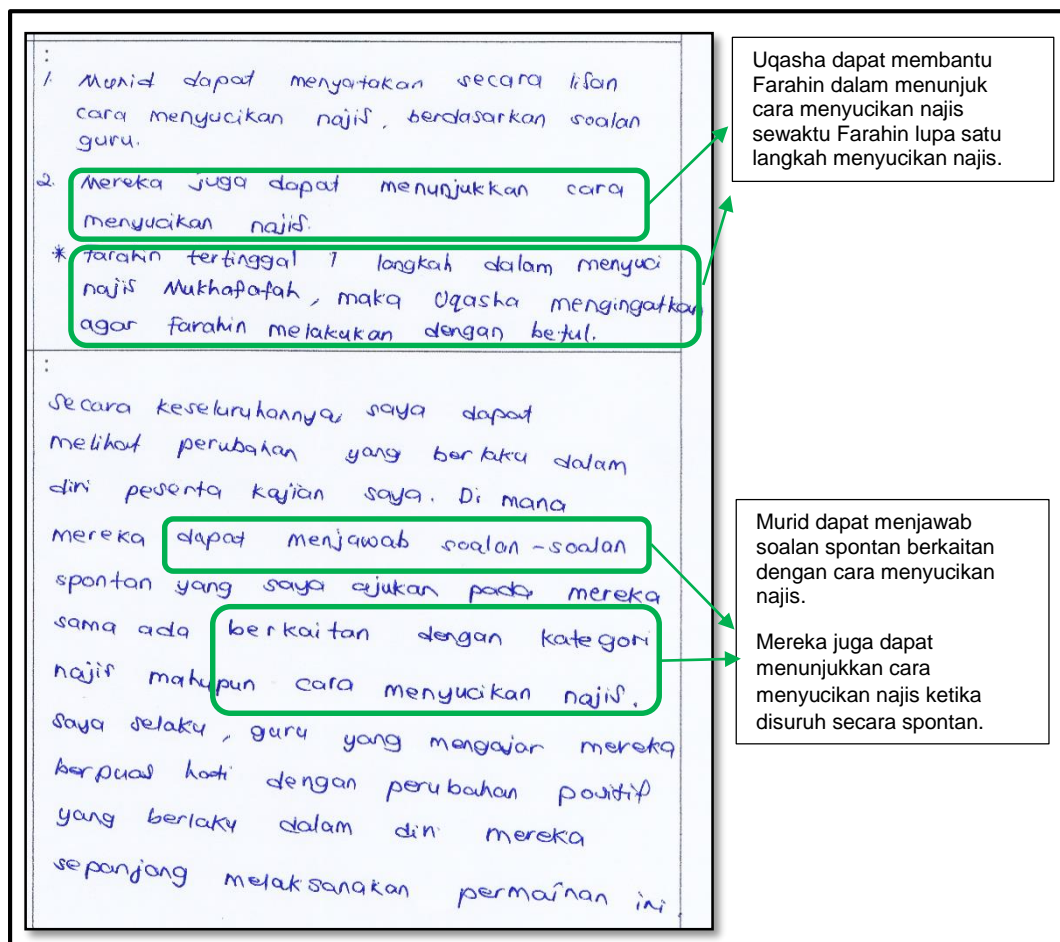 :
1. Murid dapat menyatakan secara lisan
cara menyucikan najis, berdasarkan soalan
guru.
2. Mereka juga dapat menunjukkan cara
menyucikan najis.
* farahin tertinggal 1 langkah dalam menyuci
najis Mukhafafah, maka Uqasha mengingatkan
agar farahin melakukan dengan betul.
:
secara keseluruhannya, saya dapat
melihat perubahan yang berlaku dalam
diri peserta kajian saya. Di mana
mereka dapat menjawab soalan-soalan
spontan yang saya ajukan pada mereka
sama ada berkaitan dengan kategori
najis mahupun cara menyucikan najis.
saya selaku, guru yang mengajar mereka
berpuas hati dengan perubahan positif
yang berlaku dalam diri mereka
sepanjang melaksanakan permainan ini.
Uqasha dapat membantu
Farahin dalam menunjuk
cara menyucikan najis
sewaktu Farahin lupa satu
langkah menyucikan najis.
Murid dapat menjawab
soalan spontan berkaitan
dengan cara menyucikan
najis.
Mereka juga dapat
menunjukkan cara
menyucikan najis ketika
disuruh secara spontan.